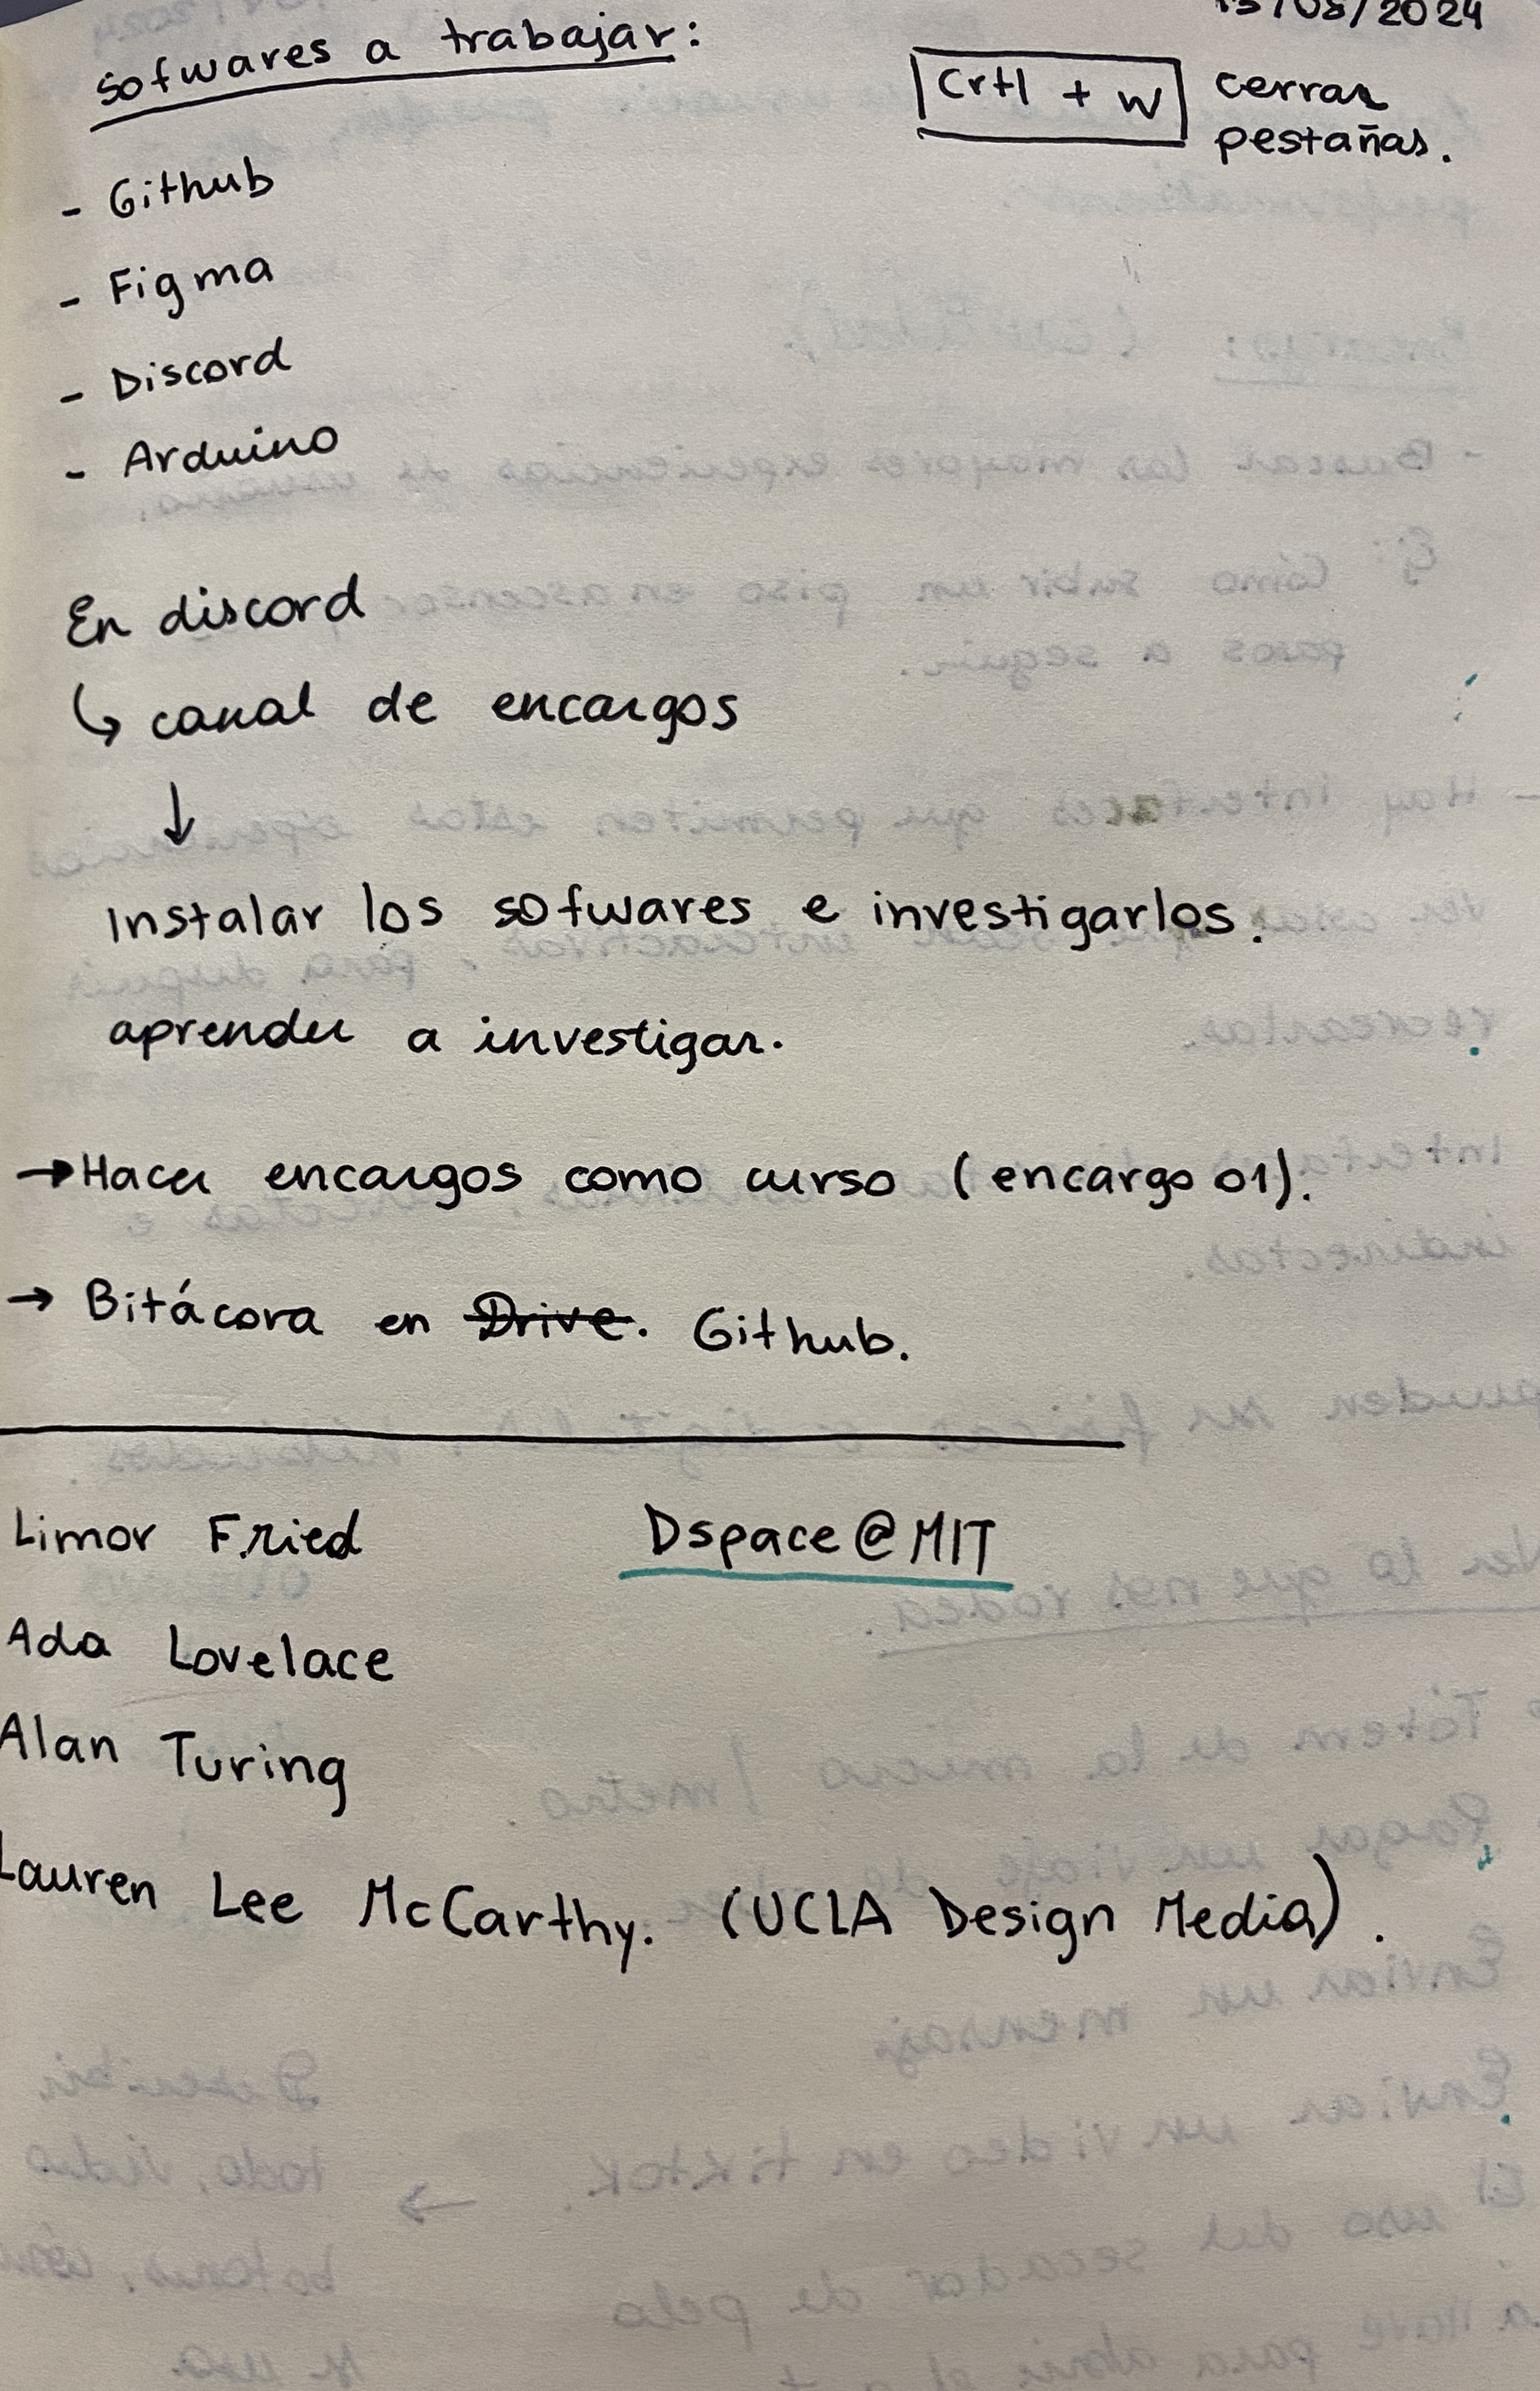 13/08/2024
sofwares a trabajar:
Crtl + W cerrar
pestañas.
- Github
- Figma
- Discord
- Arduino
En discord
↳ canal de encargos
↓
Instalar los sofwares e investigarlos.
aprender a investigar.
→ Hacer encargos como curso (encargo 01).
→ Bitácora en Drive. Github.
Limor Fried Dspace@MIT
Ada Lovelace
Alan Turing
Lauren Lee McCarthy. (UCLA Design Media).